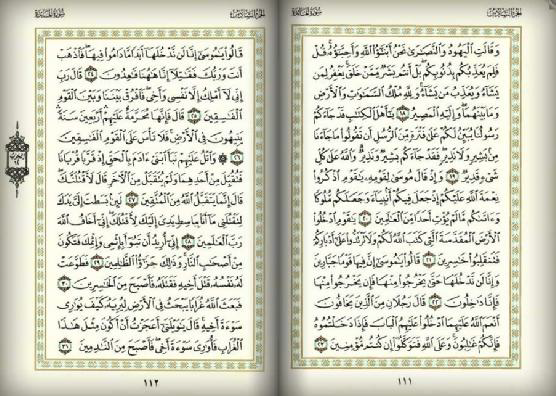 الجزء السادس سُورَةُ المَائِدَةِ
وَقَالَتِ ٱلْيَهُودُ وَٱلنَّصَـٰرَىٰ نَحْنُ أَبْنَـٰٓؤُا۟ ٱللَّهِ وَأَحِبَّـٰٓؤُهُۥ قُلْ
فَلِمَ يُعَذِّبُكُم بِذُنُوبِكُم بَلْ أَنتُم بَشَرٌ مِّمَّنْ خَلَقَ يَغْفِرُ لِمَن
يَشَآءُ وَيُعَذِّبُ مَن يَشَآءُ وَلِلَّهِ مُلْكُ ٱلسَّمَـٰوَٰتِ وَٱلْأَرْضِ
وَمَا بَيْنَهُمَا وَإِلَيْهِ ٱلْمَصِيرُ ١٨ يَـٰٓأَهْلَ ٱلْكِتَـٰبِ قَدْ جَآءَكُمْ
رَسُولُنَا يُبَيِّنُ لَكُمْ عَلَىٰ فَتْرَةٍ مِّنَ ٱلرُّسُلِ أَن تَقُولُوا۟ مَا جَآءَنَا
مِنۢ بَشِيرٍ وَلَا نَذِيرٍ فَقَدْ جَآءَكُم بَشِيرٌ وَنَذِيرٌ وَٱللَّهُ عَلَىٰ كُلِّ
شَىْءٍ قَدِيرٌ ١٩ وَإِذْ قَالَ مُوسَىٰ لِقَوْمِهِۦ يَـٰقَوْمِ ٱذْكُرُوا۟
نِعْمَةَ ٱللَّهِ عَلَيْكُمْ إِذْ جَعَلَ فِيكُمْ أَنۢبِيَآءَ وَجَعَلَكُم مُّلُوكًا
وَءَاتَىٰكُم مَّا لَمْ يُؤْتِ أَحَدًا مِّنَ ٱلْعَـٰلَمِينَ ٢٠ يَـٰقَوْمِ ٱدْخُلُوا۟
ٱلْأَرْضَ ٱلْمُقَدَّسَةَ ٱلَّتِى كَتَبَ ٱللَّهُ لَكُمْ وَلَا تَرْتَدُّوا۟ عَلَىٰٓ أَدْبَارِكُمْ
فَتَنقَلِبُوا۟ خَـٰسِرِينَ ٢١ قَالُوا۟ يَـٰمُوسَىٰٓ إِنَّ فِيهَا قَوْمًا جَبَّارِينَ
وَإِنَّا لَن نَّدْخُلَهَا حَتَّىٰ يَخْرُجُوا۟ مِنْهَا فَإِن يَخْرُجُوا۟ مِنْهَا
فَإِنَّا دَٰخِلُونَ ٢٢ قَالَ رَجُلَانِ مِنَ ٱلَّذِينَ يَخَافُونَ
أَنْعَمَ ٱللَّهُ عَلَيْهِمَا ٱدْخُلُوا۟ عَلَيْهِمُ ٱلْبَابَ فَإِذَا دَخَلْتُمُوهُ
فَإِنَّكُمْ غَـٰلِبُونَ وَعَلَى ٱللَّهِ فَتَوَكَّلُوٓا۟ إِن كُنتُم مُّؤْمِنِينَ ٢٣
١١١
الجزء السادس سُورَةُ المَائِدَةِ
قَالُوا۟ يَـٰمُوسَىٰٓ إِنَّا لَن نَّدْخُلَهَآ أَبَدًا مَّا دَامُوا۟ فِيهَا فَٱذْهَبْ
أَنتَ وَرَبُّكَ فَقَـٰتِلَآ إِنَّا هَـٰهُنَا قَـٰعِدُونَ ٢٤ قَالَ رَبِّ
إِنِّى لَآ أَمْلِكُ إِلَّا نَفْسِى وَأَخِى فَٱفْرُقْ بَيْنَنَا وَبَيْنَ ٱلْقَوْمِ
ٱلْفَـٰسِقِينَ ٢٥ قَالَ فَإِنَّهَا مُحَرَّمَةٌ عَلَيْهِمْ أَرْبَعِينَ سَنَةً
يَتِيهُونَ فِى ٱلْأَرْضِ فَلَا تَأْسَ عَلَى ٱلْقَوْمِ ٱلْفَـٰسِقِينَ
٢٦ وَٱتْلُ عَلَيْهِمْ نَبَأَ ٱبْنَىْ ءَادَمَ بِٱلْحَقِّ إِذْ قَرَّبَا قُرْبَانًا
فَتُقُبِّلَ مِنْ أَحَدِهِمَا وَلَمْ يُتَقَبَّلْ مِنَ ٱلْـَٔاخَرِ قَالَ لَأَقْتُلَنَّكَ
قَالَ إِنَّمَا يَتَقَبَّلُ ٱللَّهُ مِنَ ٱلْمُتَّقِينَ ٢٧ لَئِنۢ بَسَطتَ إِلَىَّ يَدَكَ
لِتَقْتُلَنِى مَآ أَنَا۠ بِبَاسِطٍ يَدِىَ إِلَيْكَ لِأَقْتُلَكَ إِنِّىٓ أَخَافُ ٱللَّهَ
رَبَّ ٱلْعَـٰلَمِينَ ٢٨ إِنِّىٓ أُرِيدُ أَن تَبُوٓأَ بِإِثْمِى وَإِثْمِكَ فَتَكُونَ
مِنْ أَصْحَـٰبِ ٱلنَّارِ وَذَٰلِكَ جَزَٰٓؤُا۟ ٱلظَّـٰلِمِينَ ٢٩ فَطَوَّعَتْ
لَهُۥ نَفْسُهُۥ قَتْلَ أَخِيهِ فَقَتَلَهُۥ فَأَصْبَحَ مِنَ ٱلْخَـٰسِرِينَ ٣٠
فَبَعَثَ ٱللَّهُ غُرَابًا يَبْحَثُ فِى ٱلْأَرْضِ لِيُرِيَهُۥ كَيْفَ يُوَٰرِى
سَوْءَةَ أَخِيهِ قَالَ يَـٰوَيْلَتَىٰٓ أَعَجَزْتُ أَنْ أَكُونَ مِثْلَ هَـٰذَا
ٱلْغُرَابِ فَأُوَٰرِىَ سَوْءَةَ أَخِى فَأَصْبَحَ مِنَ ٱلنَّـٰدِمِينَ ٣١
١١٢